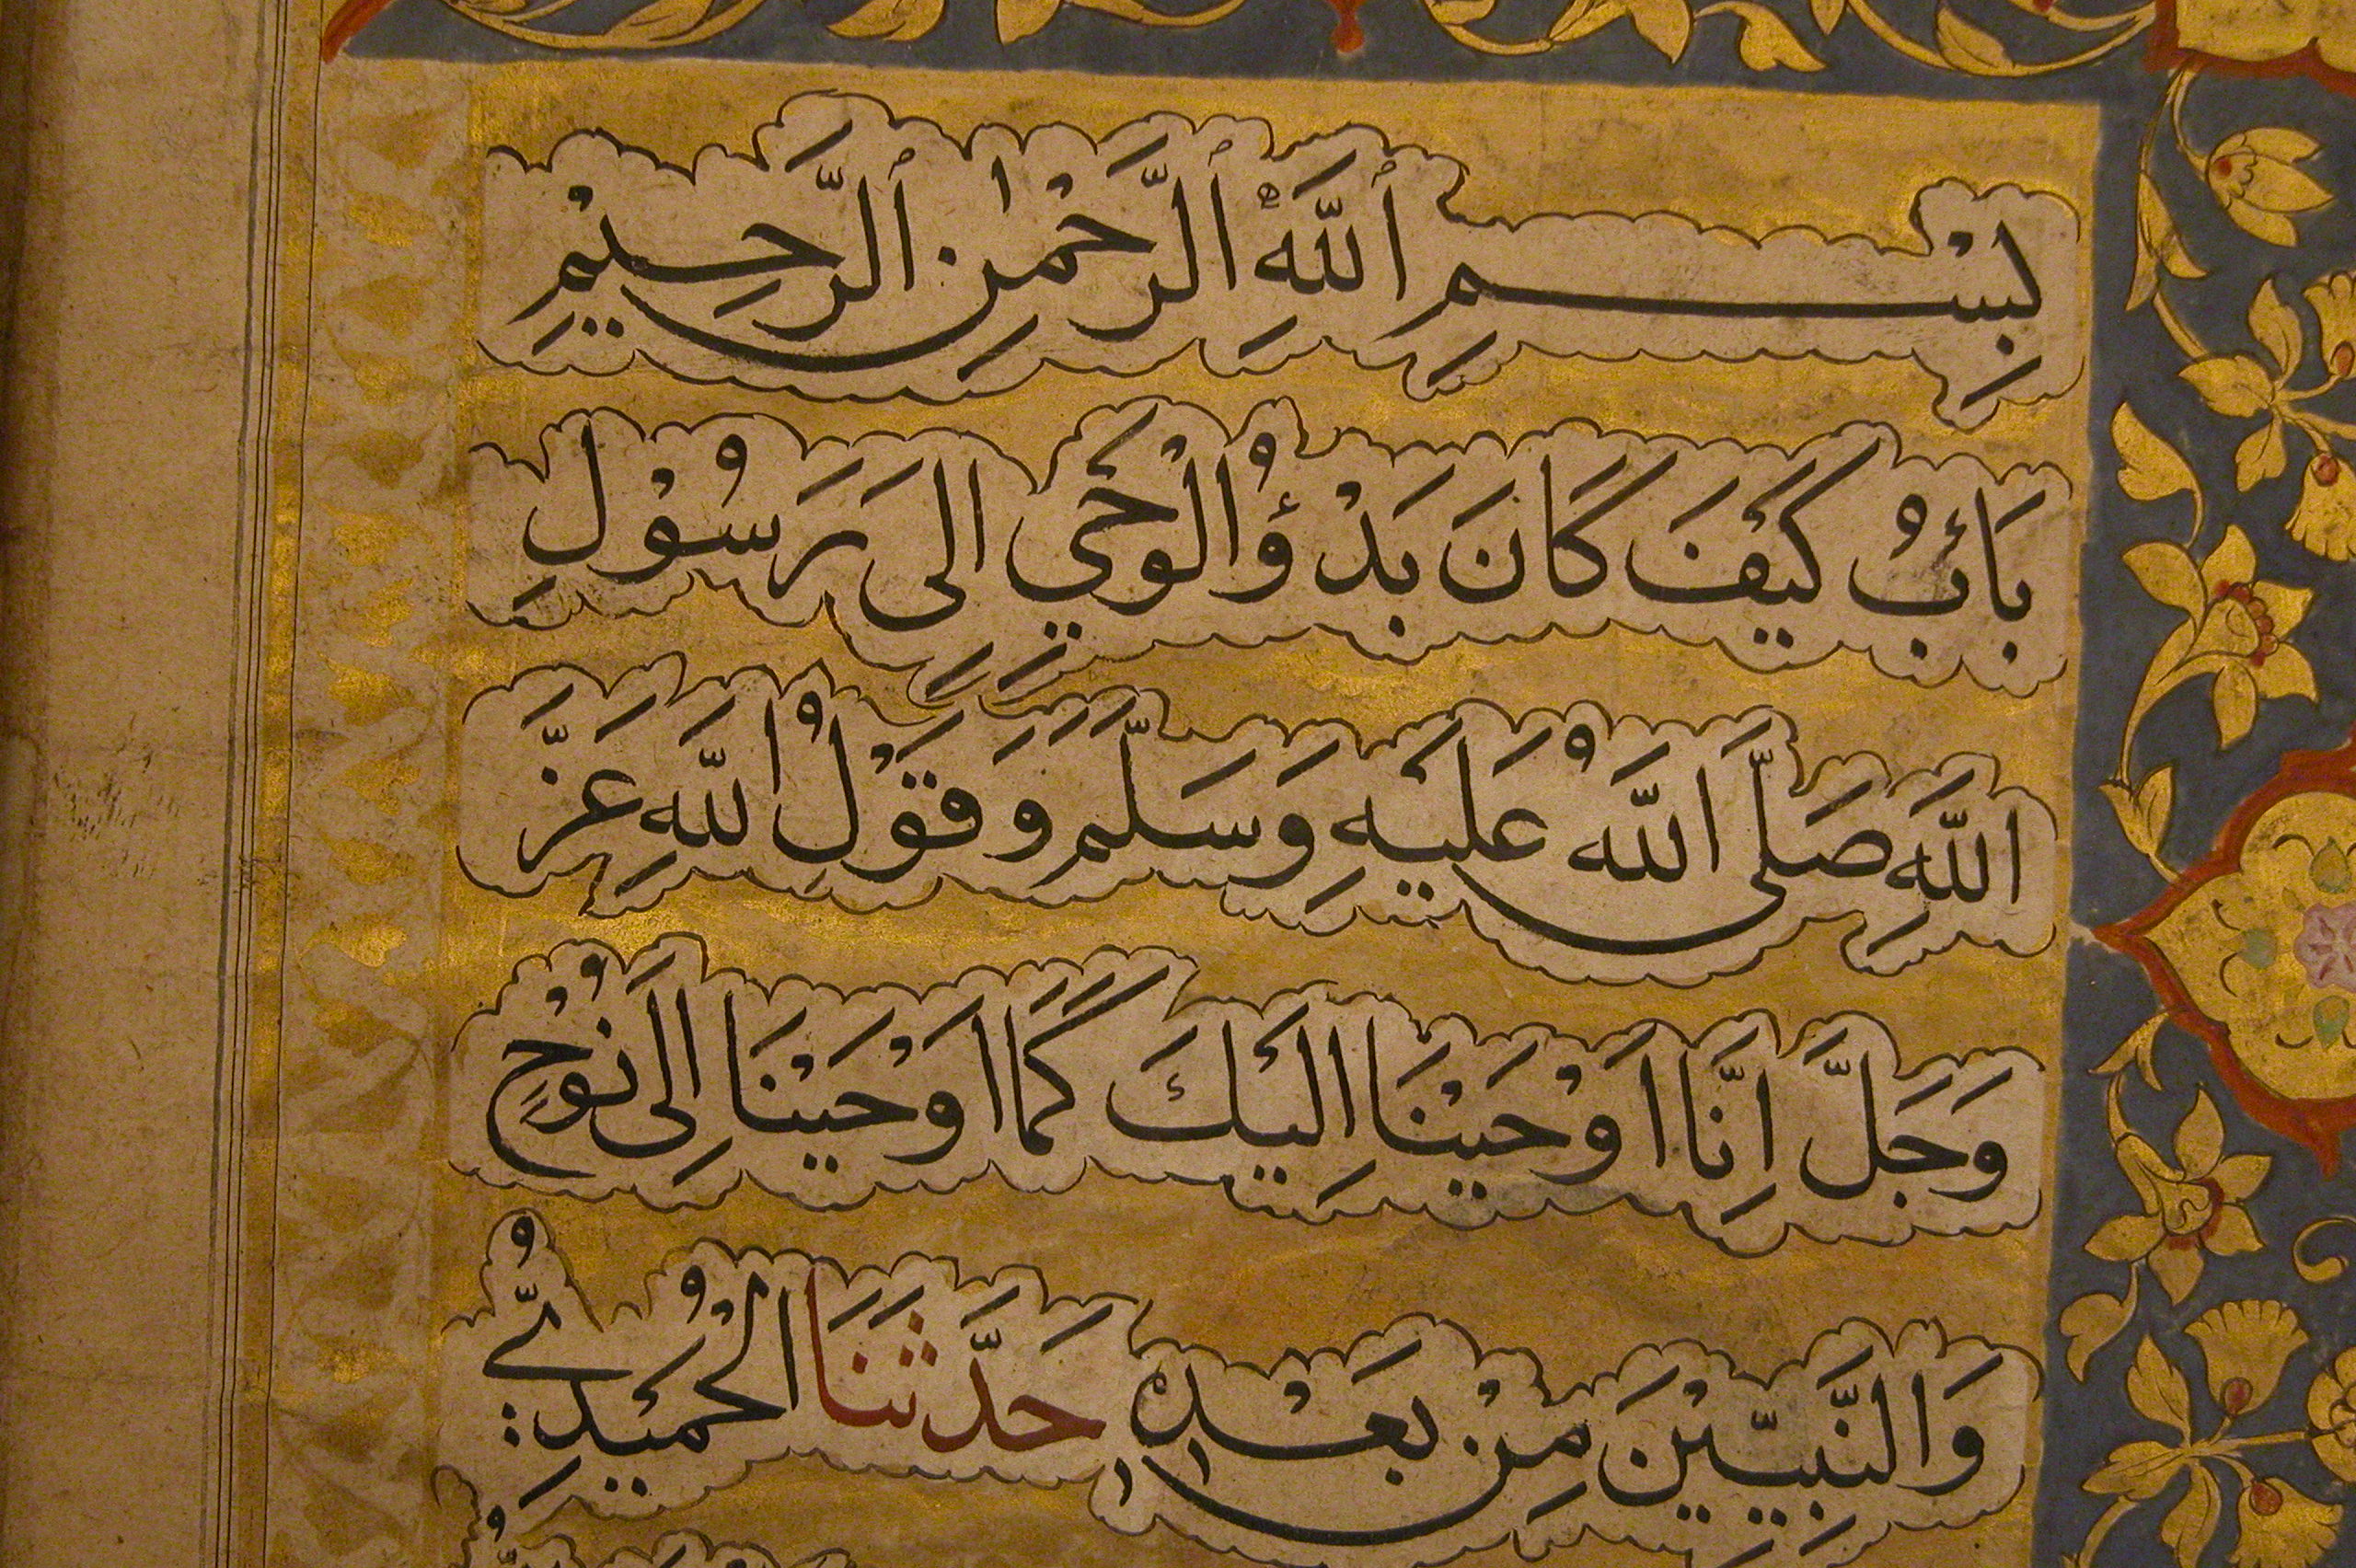 بِسْمِ ٱللَّهِ ٱلرَّحْمٰنِ ٱلرَّحِيْمِ
بَابُ كَيْفَ كَانَ بَدْؤُ الْوَحْيِ اِلَى رَسُوْلِ
اللَّهِ صَلَّى اللَّهُ عَلَيْهِ وَسَلَّمَ وَقَوْلِ اللَّهِ عَزَّ
وَجَلَّ اِنَّا اَوْحَيْنَا اِلَيْكَ كَمَا اَوْحَيْنَا اِلَى نُوْحٍ
وَالنَّبِيِّيْنَ مِنْ بَعْدِهٖ حَدَّثَنَا الْحُمَيْدِيُّ